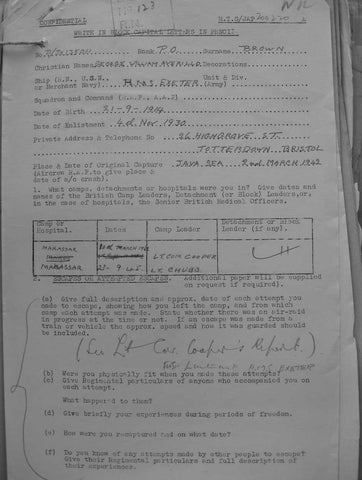 123
R.N.
CONFIDENTIAL M.I.9/JAP/
WRITE IN BLOCK CAPITAL LETTERS IN PENCIL.
No. Rank P.O. Surname BROWN
Christian Names GEORGE WILLIAM Decorations
Ship (R.N., U.S.N., or Merchant Navy) H.M.S. EXETER Unit & Div. (Army)
Squadron and Command (R.A.F., A.A.F)
Date of Birth 21-9-1912
Date of Enlistment 4th Nov. 1930
Private Address & Telephone No 26 HIGHGROVE ST.
TOTTERDOWN BRISTOL
Place & Date of Original Capture JAVA SEA 2nd MARCH 1942
(Aircrew R.A.F. to give place &
date of a/c crash).
1. What camps, detachments or hospitals were you in? Give dates and names of the British Camp Leaders, Detachment (or Block) Leaders, or, in the case of hospitals, the Senior British Medical Officers.
Camp or Hospital. Dates Camp Leader Detachment or Block Leader (if any).
MAKASSAR MARCH 1942 LT COM COOPER
MACASSAR 23-9-45 LT. CHUBB
2. ESCAPES OR ATTEMPTED ESCAPES. Additional paper will be supplied on request if required).
(a) Give full description and approx. date of each attempt you
made to escape, showing how you left the camp, and from which
camp each attempt was made. State whether there was an air-raid
in progress at the time or not. If an escape was made from a
train or vehicle the approx. speed and how it was guarded should
be included.
(See Lt Cdr. Cooper's Report.)
EXETER
(b) Were you physically fit when you made these attempts?
(c) Give Regimental particulars of anyone who accompanied you on
each attempt.
What happened to them?
(d) Give briefly your experiences during periods of freedom.
(e) How were you recaptured and on what date?
(f) Do you know of any attempts made by other people to escape?
Give their Regimental particulars and full description of
their experiences.